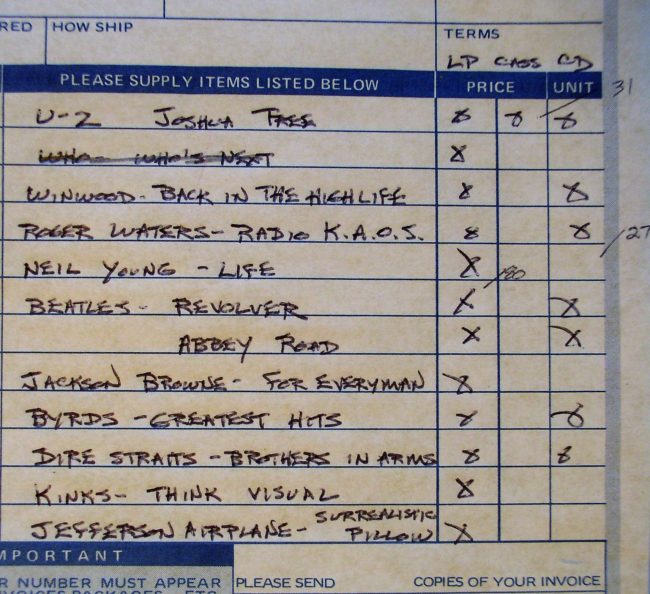 RED HOW SHIP TERMS
LP CASS CD
PLEASE SUPPLY ITEMS LISTED BELOW PRICE UNIT
31
U-2 JOSHUA TREE X X X
WHO - WHO'S NEXT X
WINWOOD - BACK IN THE HIGHLIFE X X
ROGER WATERS - RADIO K.A.O.S. X X
27
NEIL YOUNG - LIFE X
180
BEATLES - REVOLVER X X
ABBEY ROAD X X
JACKSON BROWNE - FOR EVERYMAN X
BYRDS - GREATEST HITS X X
DIRE STRAITS - BROTHERS IN ARMS X X
KINKS - THINK VISUAL X
JEFFERSON AIRPLANE - SURREALISTIC PILLOW X
MPORTANT
R NUMBER MUST APPEAR PLEASE SEND COPIES OF YOUR INVOICE